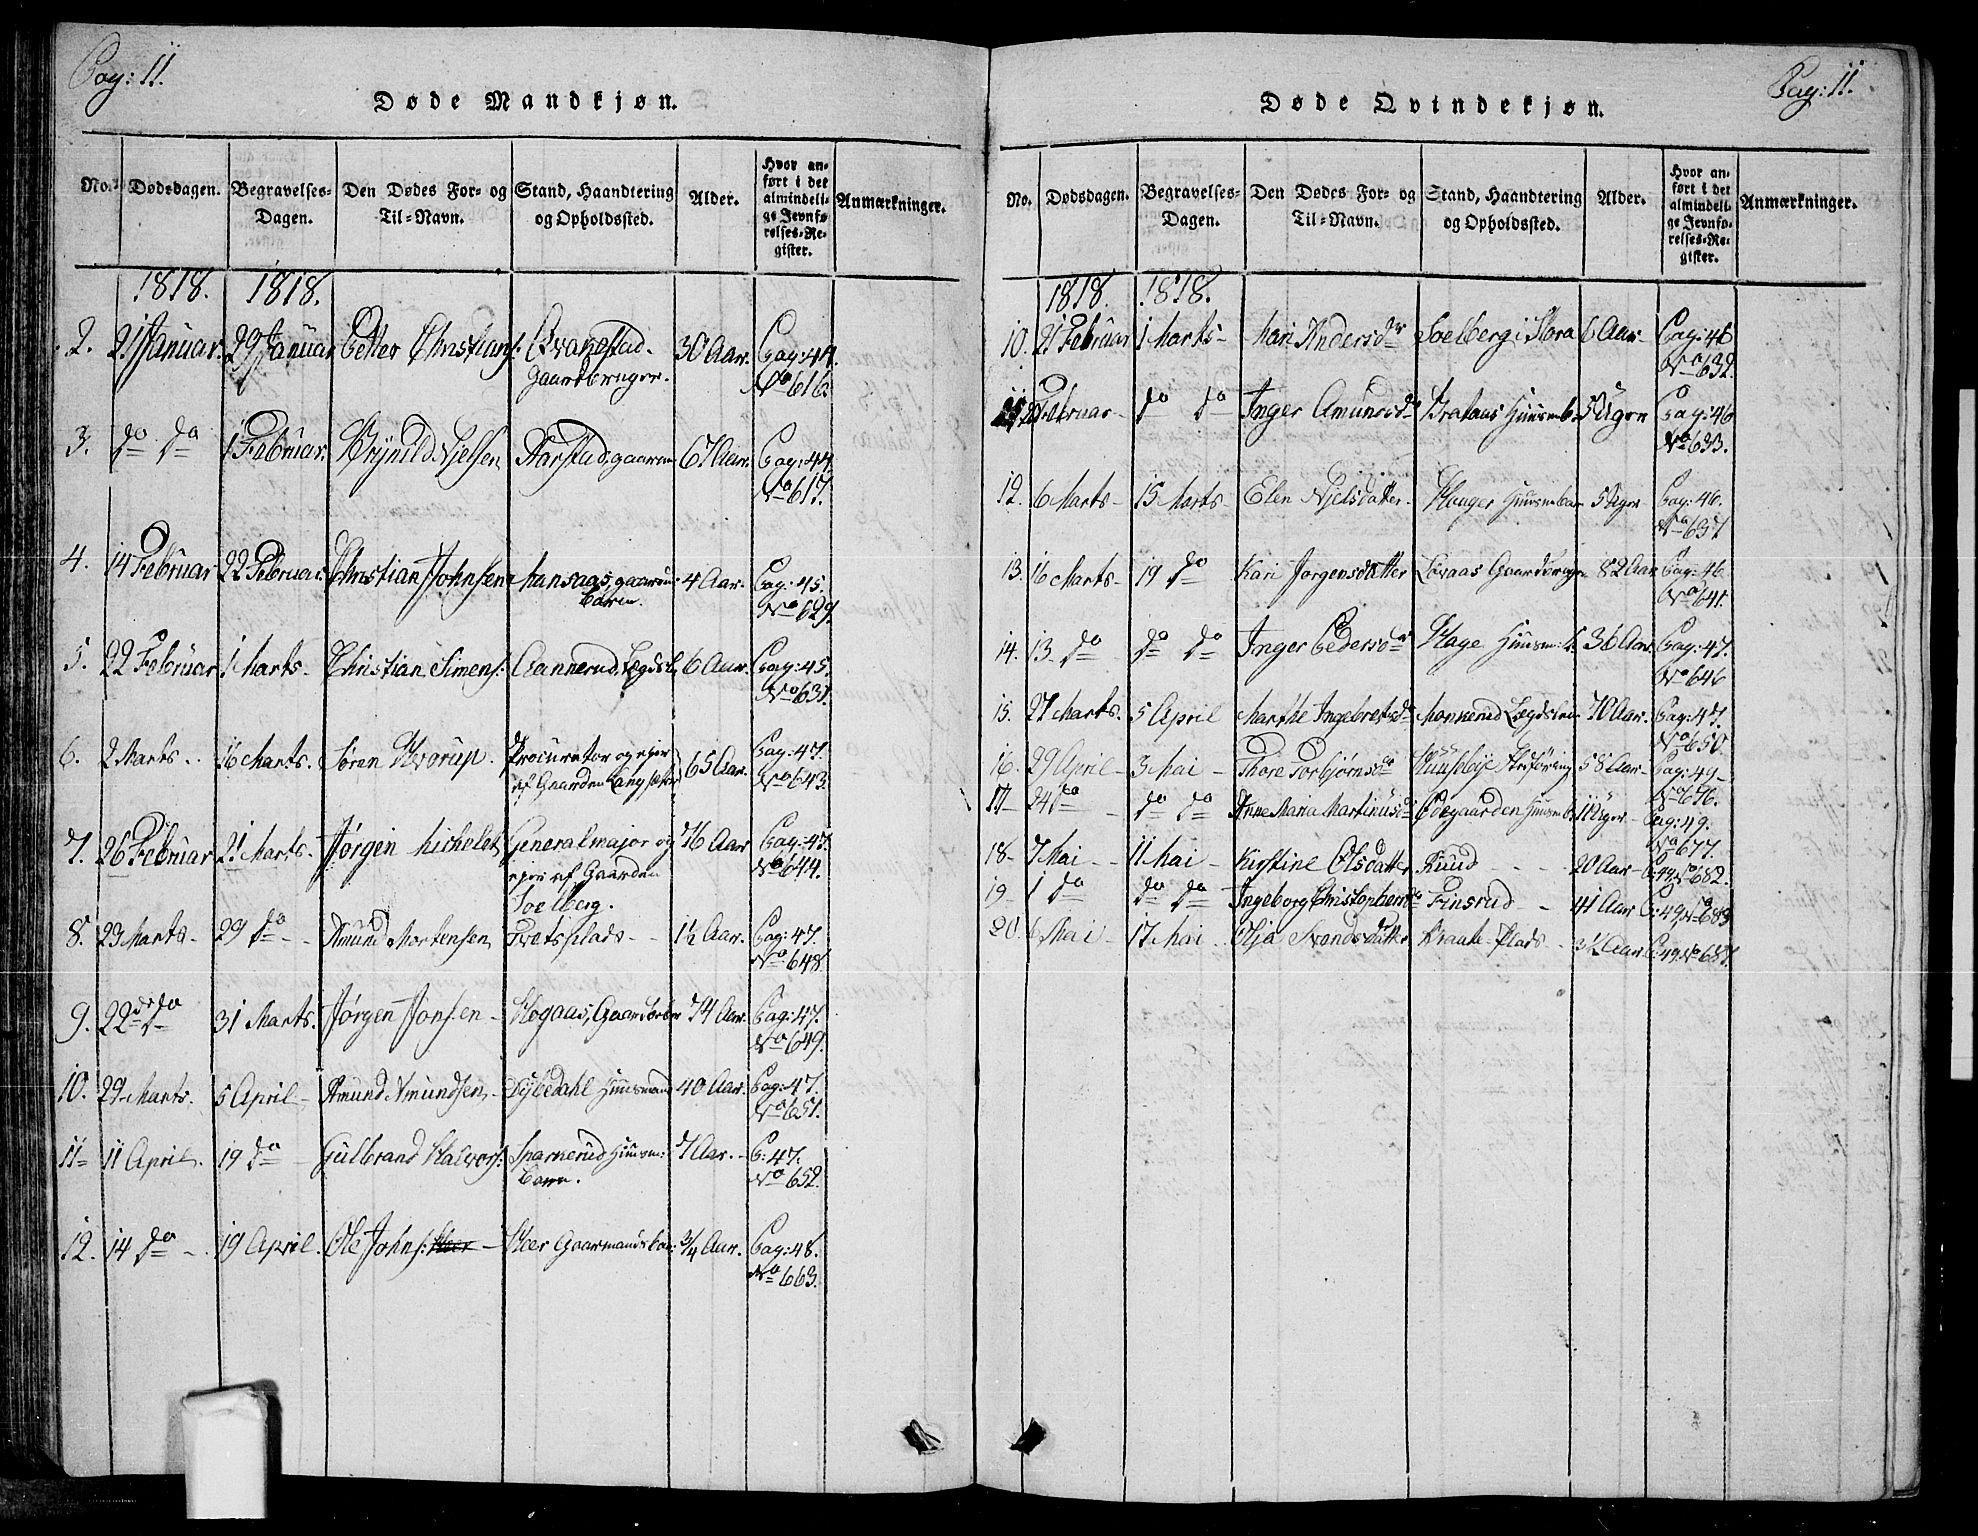 Pag: 11.
Døde Mandkjøn.
No. Dødsdagen. Begravelses-Dagen. Den Dødes For- og Til-Navn. Stand, Haandtering og Opholdssted. Alder. Hvor anført i det almindelige Jevnførelses-Register. Anmærkninger.
1818. 1818.
2. 21 Januar. 29 Januar Petter Christians: Qvakestad. 30 Aar. Pag: 44.
Gaardbruger. No 616.
3. do do 1 Februar. Brynild Nielsen Aarstad, gaarm 67 Aar. Pag: 44.
No 617.
4. 14 Februar 22 Februar. Christian Johnsen Hansaas, gaardm 4 Aar. Pag: 45.
Barn. No 629.
5. 22 Februar 1 Marts. Christian Simens: Aannerud Lægdsl. 6 Aar. Pag: 45.
No 631.
6. 2 Marts. 16 Marts. Søren Hvorup. Procurator og ejer 65 Aar. Pag: 47.
af Gaarden Langsæther No 643.
7. 26 Februar 21 Marts. Jørgen Michelet Generalmajor og 76 Aar Pag: 47.
ejer af Gaarden No 644.
Soelberg.
8. 23 Marts. 29 do Amund Mortensen Tvetsplads 1½ Aar. Pag: 47.
No 648.
9. 22 do 31 Marts. Jørgen Jonsen Hogaas, Gaardbr 74 Aar. Pag: 47.
No 649.
10. 29 Marts. 5 April Amund Amundsen Dybedahl Huusmand 40 Aar. Pag: 47.
No 651.
11 11 April. 19 do Gulbrand Halvors: Sparnerud Huusm: 7 Aar. P: 47.
Barn. No 652.
12. 14 do 19 April. Ole Johns: Hoer Gaarmandsbar: 3/4 Aar. Pag: 48.
No 663.
Pag: 11.
Døde Qvindekjøn.
No. Dødsdagen. Begravelses-Dagen. Den Dødes For- og Til-Navn. Stand, Haandtering og Opholdssted. Alder. Hvor anført i det almindelige Jevnførelses-Register. Anmærkninger.
1818. 1818.
10. 21 Februar 1 Marts Mari Andersdr Soelberg i Skova 6 Aar Pag: 46
No 632.
Februar do do Inger Amundsdr Brataas Huusmb 5 Uger Pag: 46
No 633.
12. 6 Marts 15 Marts Elen Nielsdatter. Hauger Huusmbar 5 Uger Pag: 46.
No 637
13. 16 Marts 19 do Kari Jørgensdatter Løvaas Gaardbruger 82 Aar Pag: 46
No 641.
14. 13 do do do Inger Pedersdr Hage Huusm: 36 Aar Pag: 47.
No 646
15. 27 Marts. 5 April Marthe Ingebretsdr Monnerud Lægdslem 70 Aar. Pag: 47.
No 650.
16. 29 April 3 Mai Thore Torbjørnsdr 58 Aar Pag: 49
No 676.
17 24 do do do Anne Maria Martinusdr Ødegaarden Huusmb: 11 Uger Pag: 49.
No 677.
18 7 Mai 11 Mai Kirstine Olsdatter Ruud 20 Aar P: 49. No 682.
19 1 do do do Ingeborg Christophersdr Finsrud 41 Aar P: 49. No 683
20. 6 Mai 17 Mai Olja Svendsdatter Kraate Plads 3½ Aar P: 49. No 687.